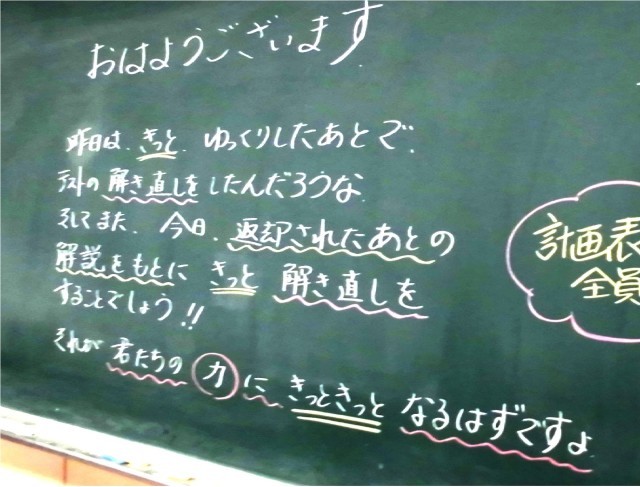 おはようございます
昨日は、きっと、ゆっくりしたあとで、
テストの解き直しをしたんだろうな
そしてまた、今日、返却されたあとの
解説をもとにきっと解き直しを
することでしょう!!
それが君たちの力にきっときっとなるはずですよ
計画表
全員